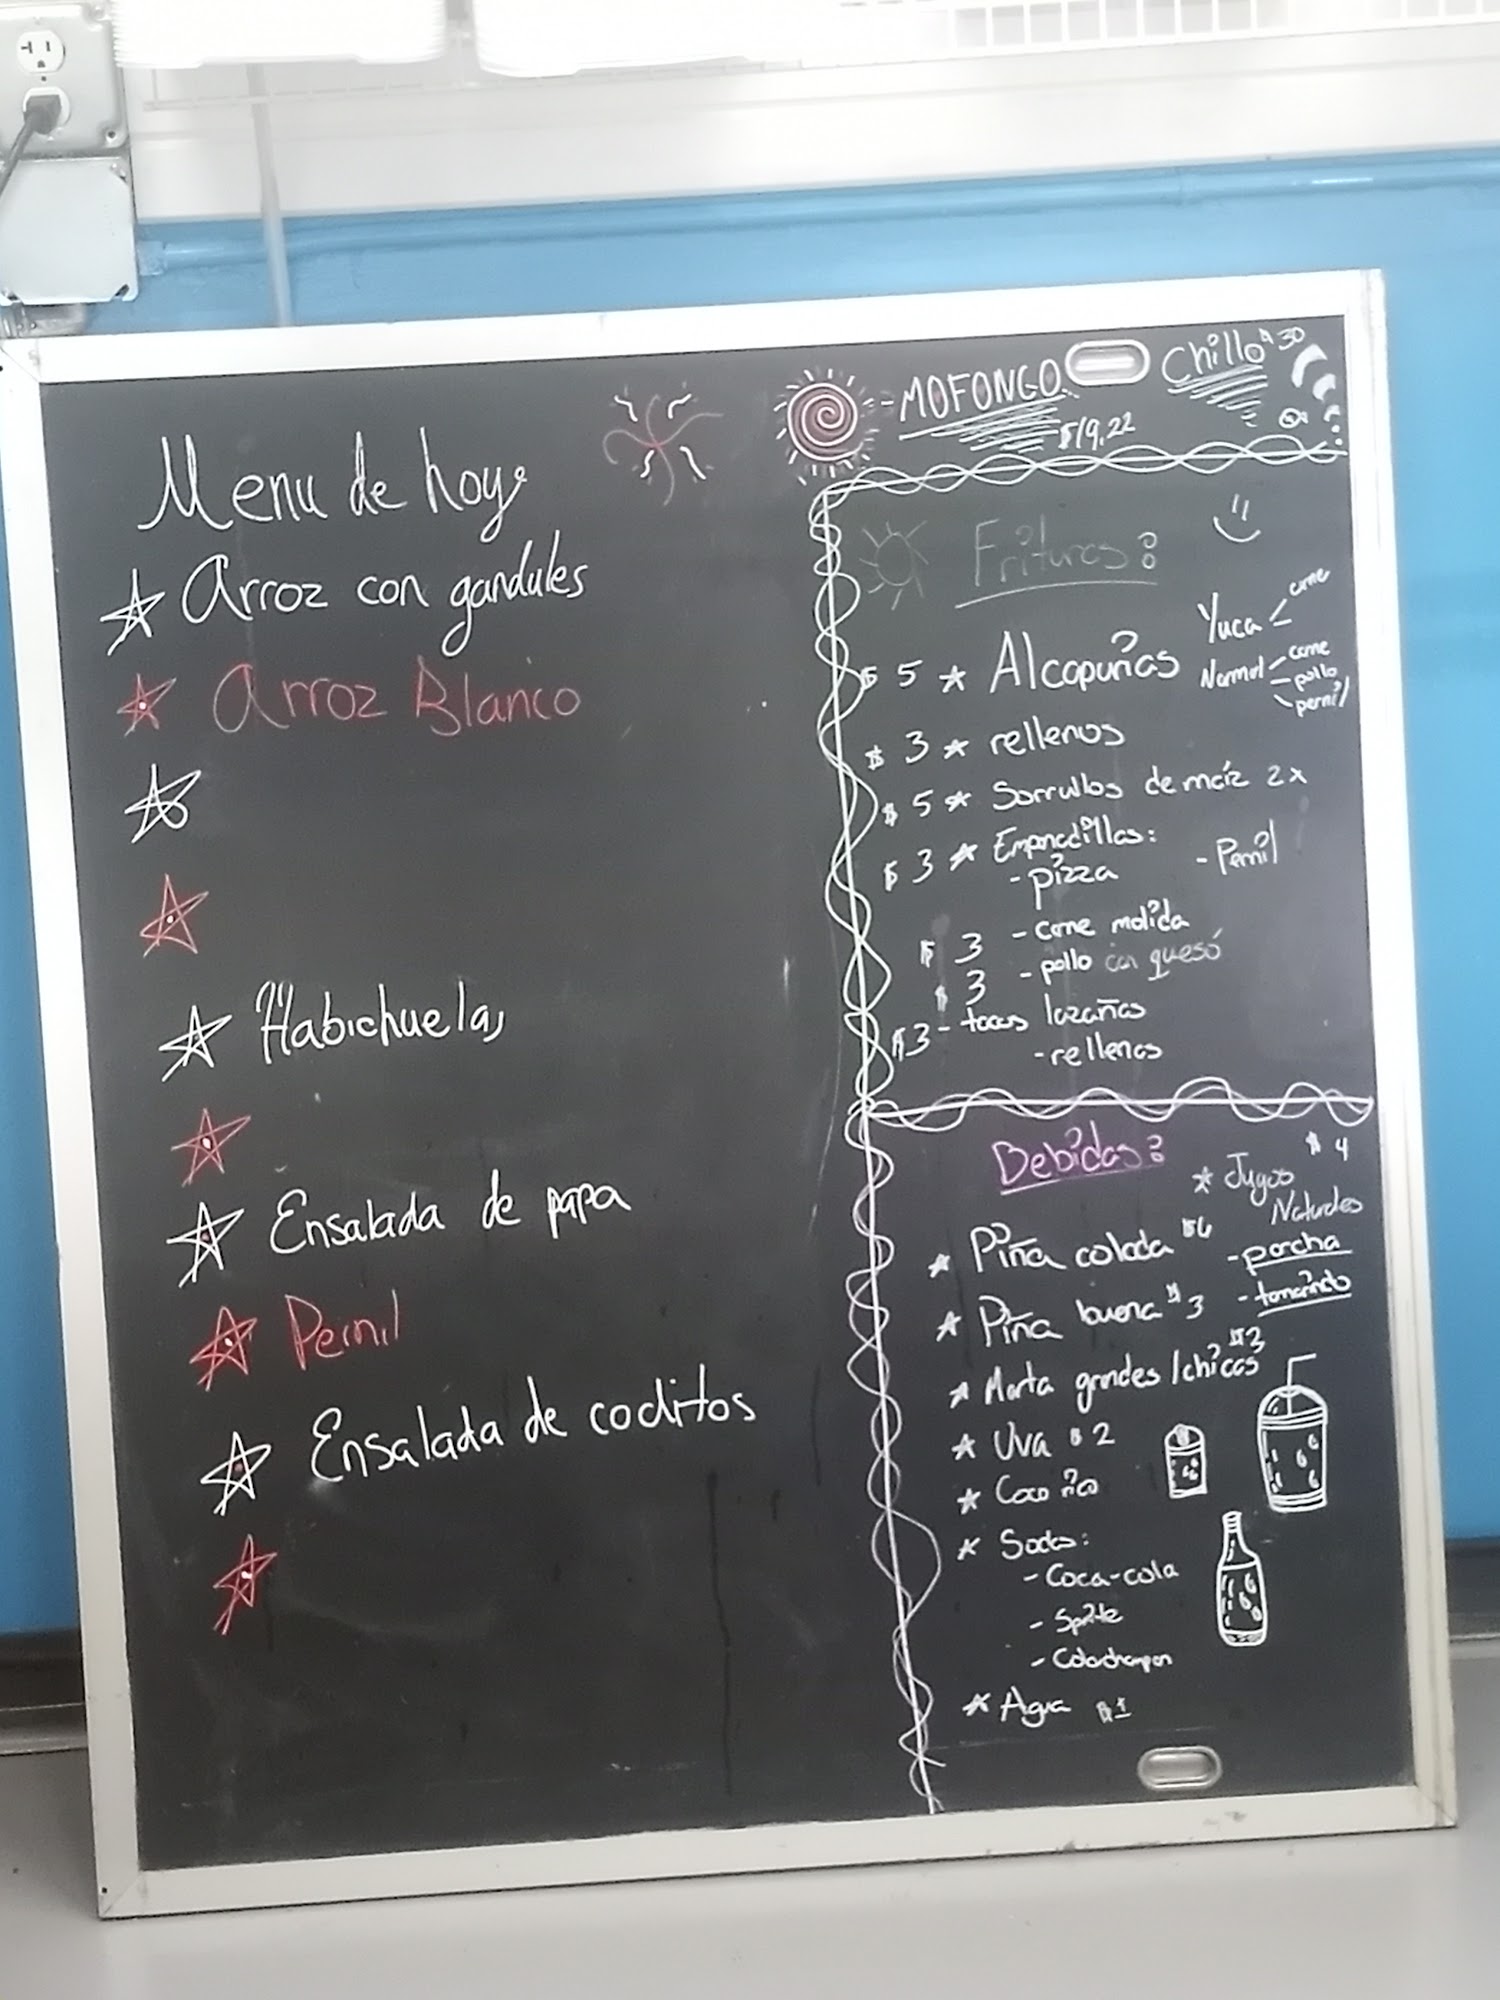 Menu de hoy
Arroz con gandules
Arroz Blanco
Habichuelas
Ensalada de papa
Pernil
Ensalada de coditos
- MOFONGO
$19.22
Chillo $30
Frituras:
$5 * Alcapurrias
Yuca - carne
Normal - carne
- pollo
- pernil
$3 * rellenos
$5 * Sorrullos de maíz 2x
$3 * Empanadillas:
- pizza - Pernil
$3 - carne molida
$3 - pollo con queso
$3 - tacos lazañas
- rellenos
Bebidas:
* Jugos $4
Naturales
- parcha
- tamarindo
* Piña colada $6
* Piña buena $3
* Marta grandes/chicas $3
* Uva $2
* Coco rico
* Sodas:
- Coca-cola
- Sprite
- Colachampan
* Agua $1